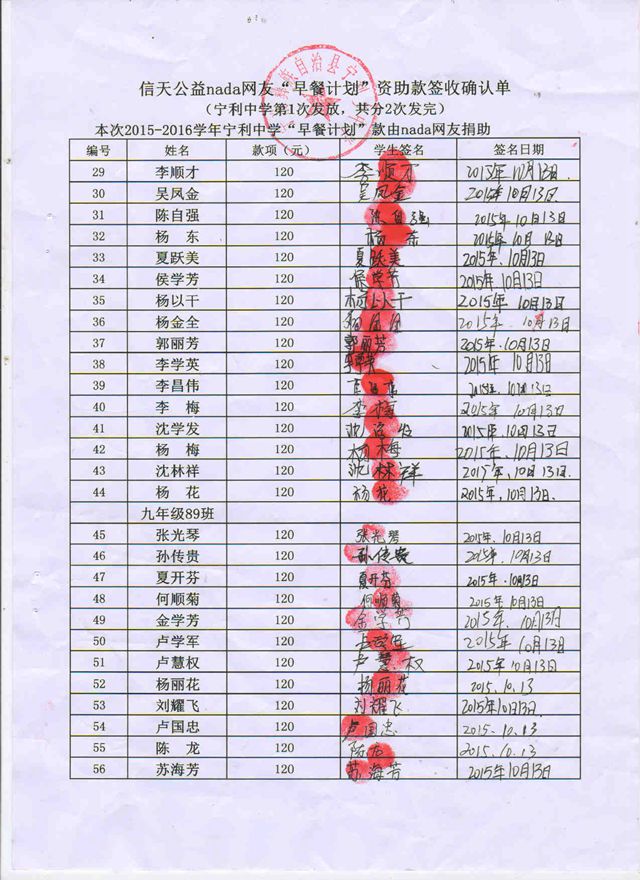 族自治县宁
信天公益nada网友“早餐计划”资助款签收确认单
（宁利中学第1次发放，共分2次发完）
本次2015-2016学年宁利中学“早餐计划”款由nada网友捐助
编号 姓名 款项（元） 学生签名 签名日期
29 李顺才 120 李顺才 2015年10月13日
30 吴凤金 120 吴凤金 2015年10月13日
31 陈自强 120 陈自强 2015年10月13日
32 杨 东 120 杨东 2015年10月13日
33 夏跃美 120 夏跃美 2015年10月13日
34 侯学芳 120 侯学芳 2015年10月13日
35 杨以干 120 杨以干 2015年10月13日
36 杨金全 120 杨金全 2015年10月13日
37 郭丽芳 120 郭丽芳 2015年10月13日
38 李学英 120 2015年10月13日
39 李昌伟 120 2015年10月13日
40 李 梅 120 李梅 2015年10月13日
41 沈学发 120 沈学发 2015年10月13日
42 杨 梅 120 杨梅 2015年10月13日
43 沈林祥 120 沈林祥 2015年10月13日.
44 杨 花 120 杨花 2015年10月13日.
九年级89班
45 张光琴 120 张光琴 2015年10月13日
46 孙传贵 120 孙传贵 2015年10月13日
47 夏开芬 120 夏开芬 2015年10月13日
48 何顺菊 120 何顺菊 2015年10月13日
49 金学芳 120 金学芳 2015年10月13日
50 卢学军 120 卢学军 2015年10月13日
51 卢慧权 120 卢慧权 2015年10月13日
52 杨丽花 120 杨丽花 2015.10.13
53 刘耀飞 120 刘耀飞 2015年10月13日
54 卢国忠 120 卢国忠 2015.10.13
55 陈 龙 120 陈龙 2015.10.13
56 苏海芳 120 苏海芳 2015年10月13日